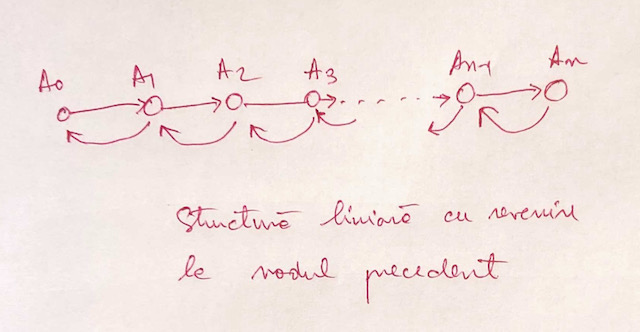 A0 A1 A2 A3 An-1 An
Structură liniară cu revenire
la nodul precedent